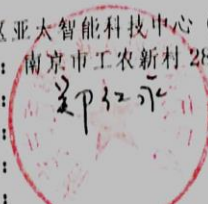 区亚太智能科技中心（
：南京市工农新村28
：郑红永
：
：